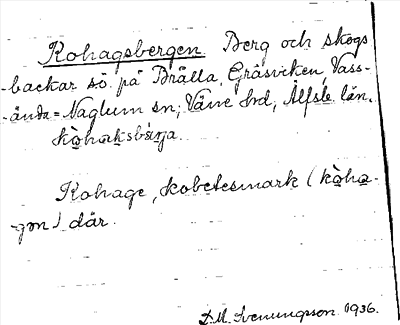 Kohagsbergen. Berg och skogs
-backar sö. på Brålla, Gräsviken, Vass-
-ända=Naglum sn; Väne hd, Älfsb. län.
kòhaksbærja.
Kohage, kobetesmark (kòha-
-gən) där.
D.M. Svenungsson 1936.